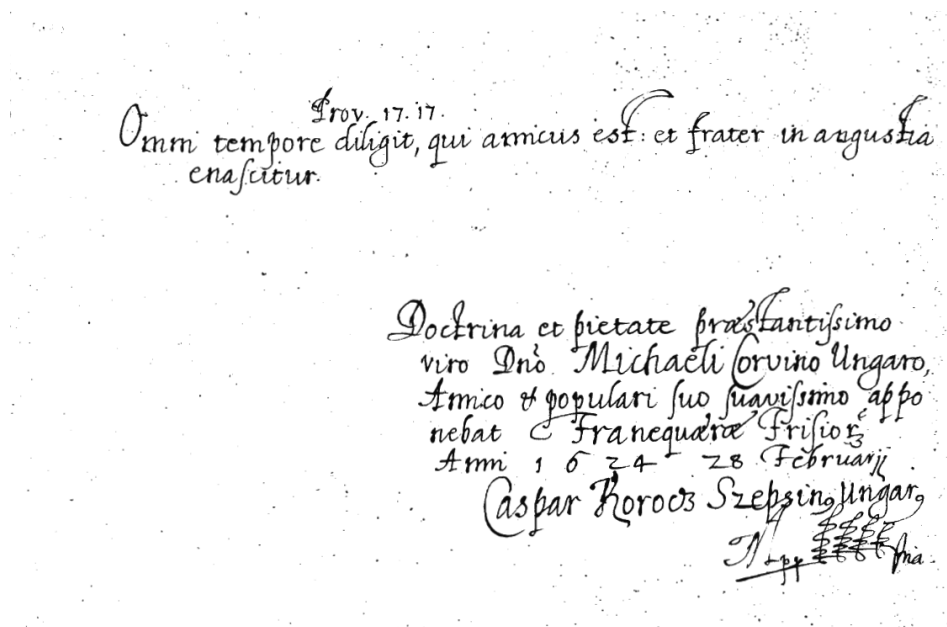 Prov. 17. 17.
Omni tempore diligit, qui amicus est: et frater in angustia
enascitur.
Doctrina et pietate præstantissimo
viro Dnō Michaëli Corvino Ungaro,
Amico & populari suo suavissimo appo
nebat Franequæræ Frisior
Anni 1624 28 Februarij
Caspar Korocz Szepsin9 Ungar9
mpp